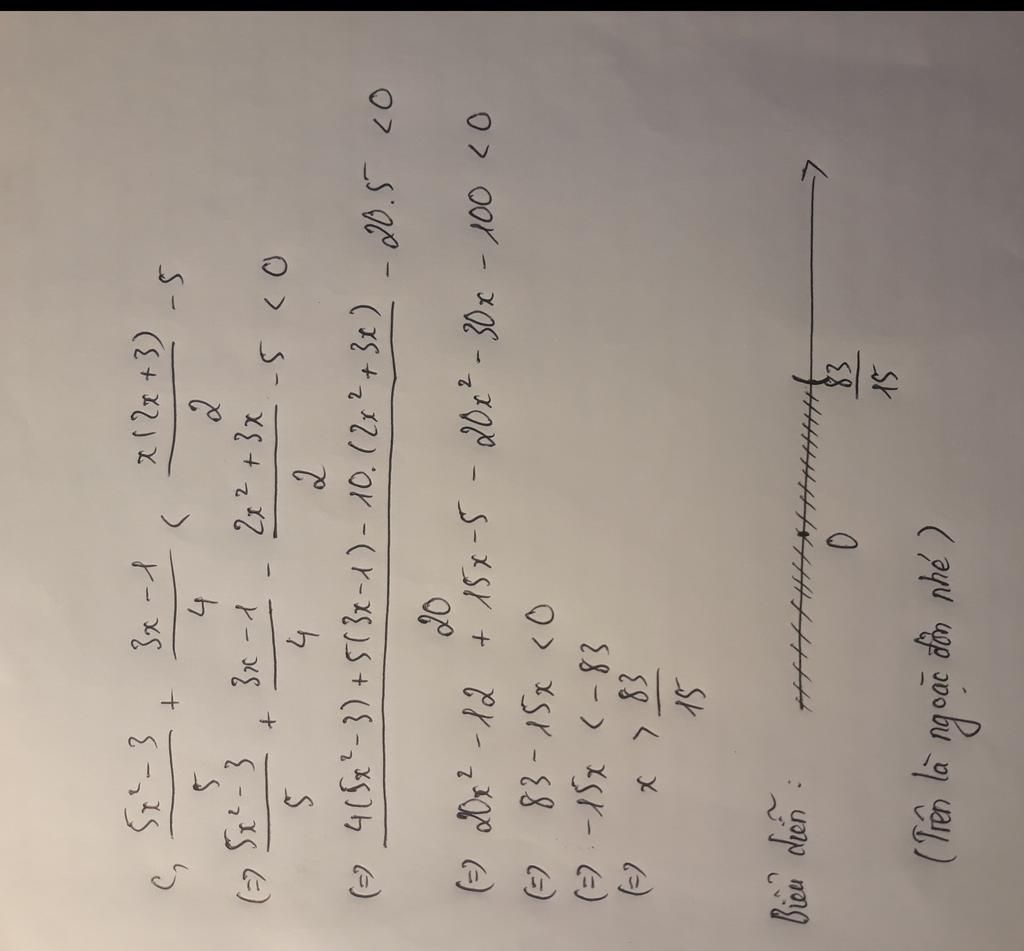 c, (5x² - 3)/5 + (3x - 1)/4 < x(2x + 3)/2 - 5
(=) (5x² - 3)/5 + (3x - 1)/4 - (2x² + 3x)/2 - 5 < 0
(=) (4(5x² - 3) + 5(3x - 1) - 10.(2x² + 3x))/20 - 20.5 < 0
(=) 20x² - 12 + 15x - 5 - 20x² - 30x - 100 < 0
(=) 83 - 15x < 0
(=) -15x < -83
(=) x > 83/15
Biểu diễn :
0 83/15
(Trên là ngoặc đơn nhé)